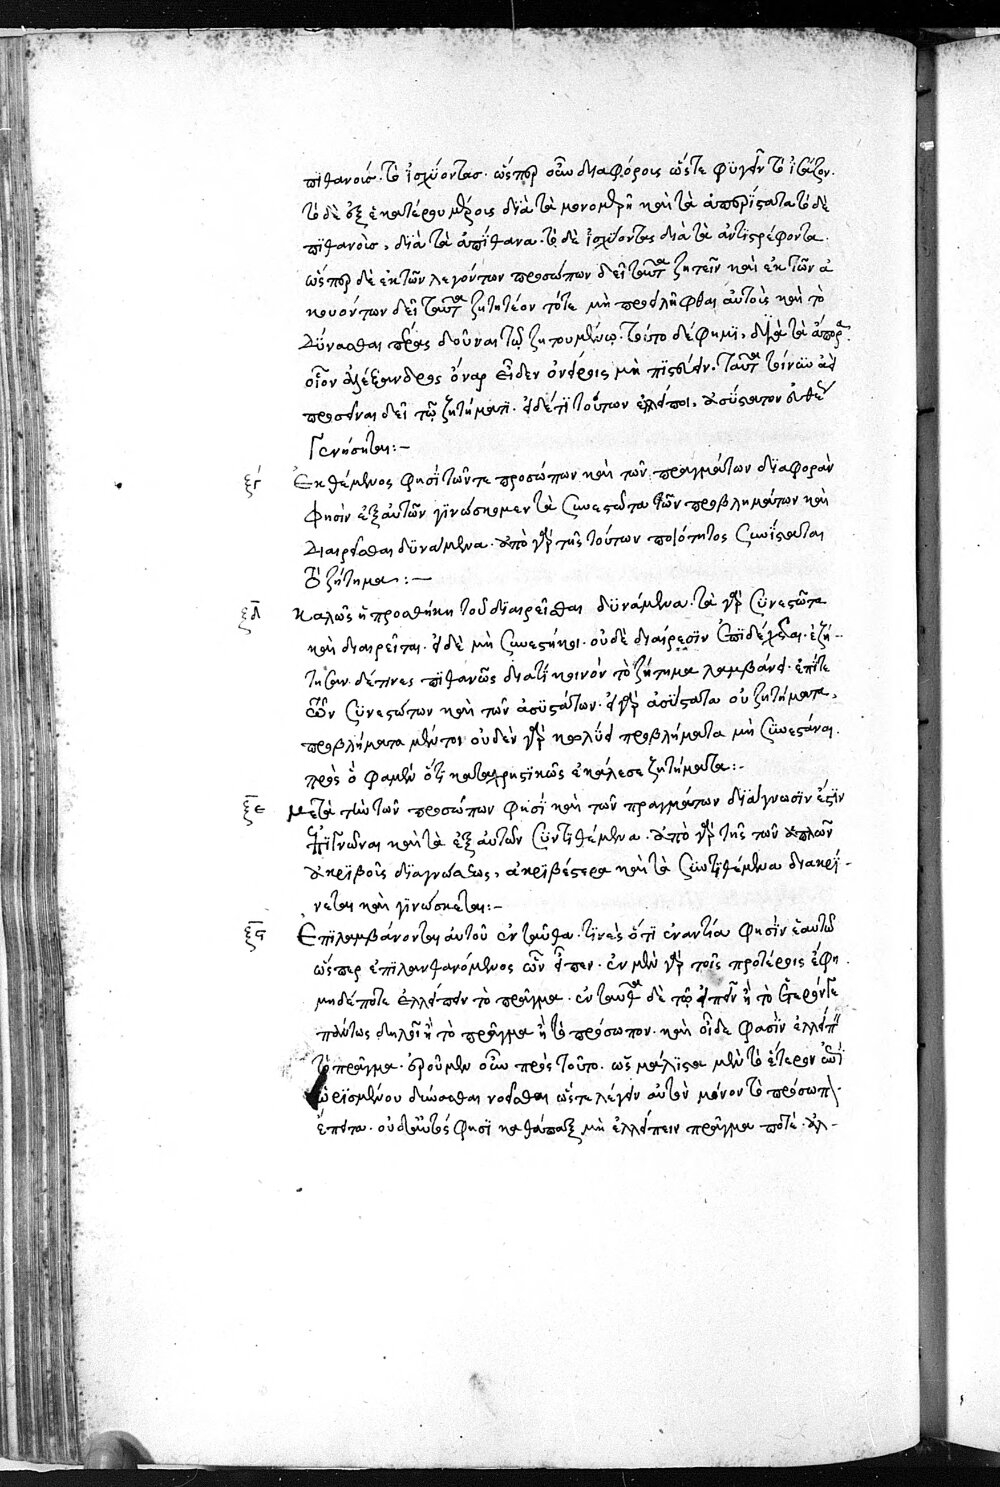 πιθανοῖς· τὸ ἰσχύοντας· ὥσπερ οὖν διαφόροις ὥστε φυγεῖν τὸ ἰσάζον·
τὸ δὲ ἐξ ἑκατέρου μέρους διὰ τὰ μονομερῆ καὶ τὰ ἀπερίστατα τὸ δὲ
πιθανοῖς, διὰ τὰ ἀπίθανα· τὸ δὲ ἰσχύοντας διὰ τὰ ἀντιστρέφοντα·
ὥσπερ δὲ ἐκ τῶν λεγόντων προσώπων δεῖ ταῦτα ζητεῖν καὶ ἐκ τῶν ἀ
κουόντων δεῖ ταῦτα ζητητέον τότε μὴ προσλῆφθαι αὐτοῖς καὶ τὸ
δύνασθαι πέρας δοῦναι τῷ ζητουμένῳ· τοῦτο δέ φημι, διὰ τὰ ἄπορα·
οἷον ἀλέξανδρος ὄναρ εἶδεν ὀνείροις μὴ πιστεύειν· ταῦτα τοίνυν ἀεὶ
προσεῖναι δεῖ τῷ ζητήματι· εἰ δέ τι τούτων ἐλλείποι, ἀσύστατον εὐθὺς
γενήσεται:–
ξγ Ἐκθέμενος φησὶ τῶν τε προσώπων καὶ τῶν πραγμάτων διαφορὰν
φησὶν ἐξ αὐτῶν γινώσκομεν τὰ συνεστῶτα τῶν προβλημάτων καὶ
διαιρεῖσθαι δυνάμενα· ἀπὸ γὰρ τῆς τούτων ποιότητος συνίσταται
τὸ ζήτημα:–
ξδ καλῶς ἡ προσθήκη τοῦ διαιρεῖσθαι δυνάμενα· τὰ γὰρ συνεστῶτα
καὶ διαιρεῖται· εἰ δὲ μὴ συνεστήκοι· οὐδὲ διαίρεσιν ἐπιδέχεται· ἐζή-
τησαν δέ τινες πιθανῶς διατί κοινὸν τὸ ζήτημα λαμβάνει· ἐπί τε
τῶν συνεστώτων καὶ τῶν ἀσυστάτων· εἰ γὰρ ἀσύστατα οὐ ζητήματα,
προβλήματα μέντοι οὐδὲν γὰρ κωλύει προβλήματα μὴ συνεστάναι·
πρὸς ὃ φαμὲν ὅτι καταχρηστικῶς ἐκάλεσε ζητήματα:–
ξε μετὰ τὴν τῶν προσώπων φησὶ καὶ τῶν πραγμάτων διάγνωσιν ἐστὶν
ἐπιγνῶναι καὶ τὰ ἐξ αὐτῶν συντιθέμενα· ἀπὸ γὰρ τῆς τῶν ἁπλῶν
ἀκριβοῦς διαγνώσεως, ἀκριβέστερα καὶ τὰ συντιθέμενα διακρί-
νεται καὶ γινώσκεται:–
ξϛ Ἐπιλαμβάνονται αὐτοῦ ἐνταῦθα· τινὲς ὅτι ἐναντία φησὶν ἑαυτῷ
ὥσπερ ἐπιλανθανόμενος ὧν εἶπεν· ἐν μὲν γὰρ τοῖς προτέροις ἔφη·
μηδέποτε ἐλλείπειν τὸ πρᾶγμα· ἐνταῦθα δὲ τῷ εἰπεῖν ἢ τὸ ἕτερόν γε
πάντως δηλοῖ ἢ τὸ πρᾶγμα ἢ τὸ πρόσωπον· καὶ οἵδε φασὶν ἐλλείπειν
τὸ πρᾶγμα· ἐροῦμεν οὖν πρὸς τοῦτο· ὡς μάλιστα μὲν τὸ ἕτερον ἀντὶ
ὡρισμένου δύνασθαι νοεῖσθαι ὥστε λέγειν αὐτὸν μόνον τὸ πρόσωπον·
ἔπειτα· οὐδ' αὐτός φησι καθάπαξ μὴ ἐλλείπειν πρᾶγμα ποτέ· ἀλ-